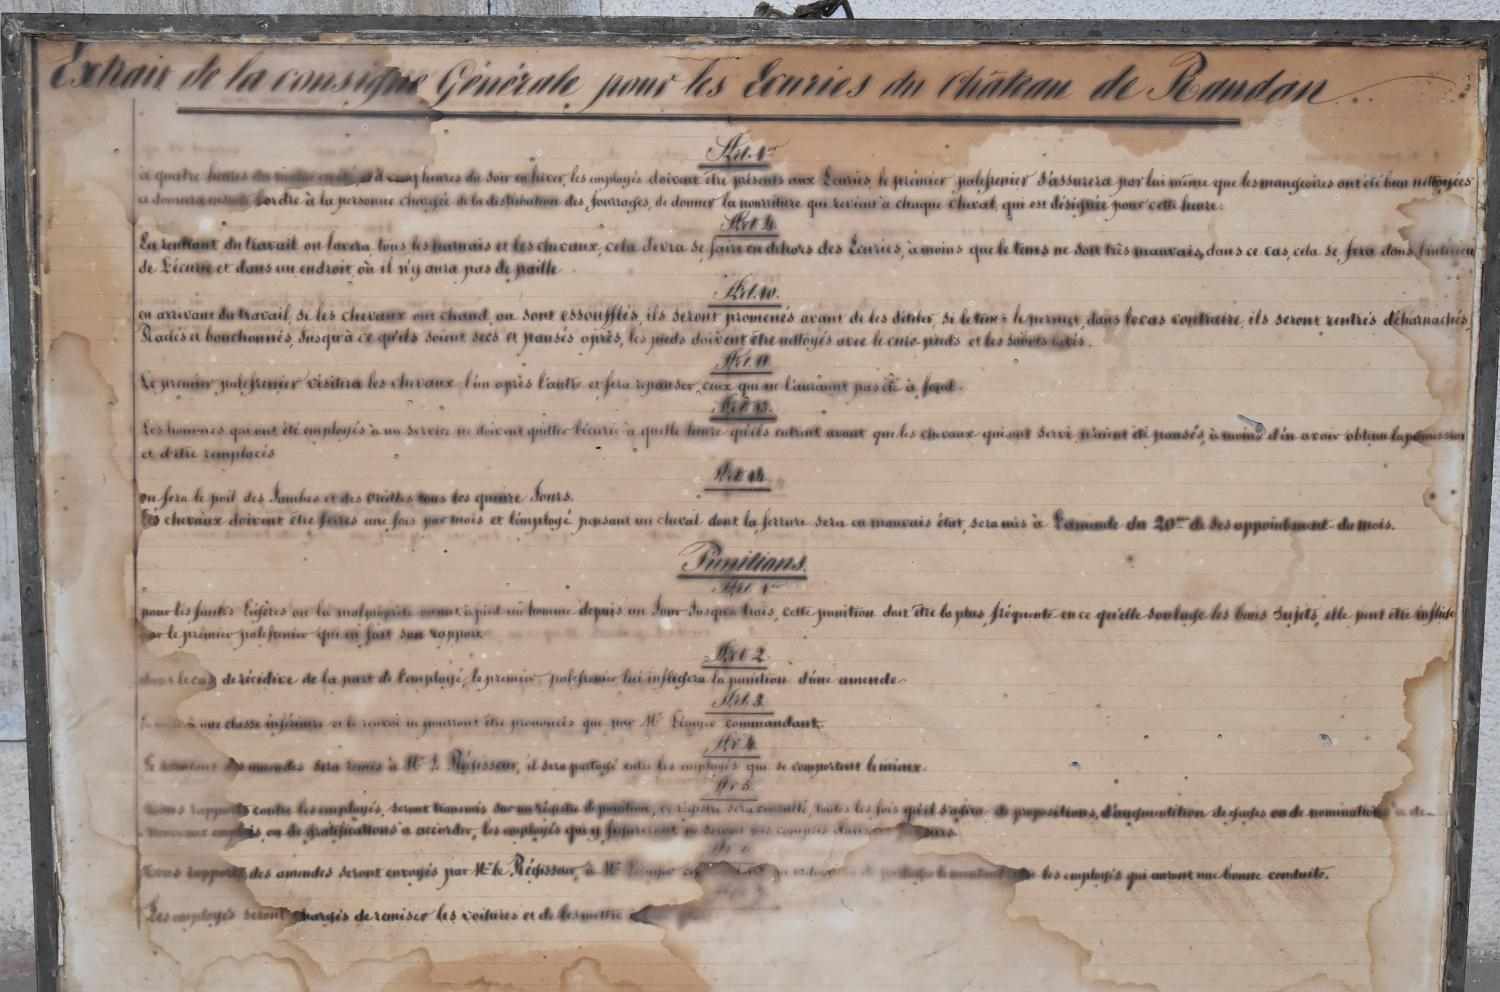 Extrait de la consigne Générale pour les Écuries du Château de Randan
Art. 1er
à quatre heures du en été, et à cinq heures du soir en hiver, les employés doivent être présents aux Écuries, le prémier palefrenier s'assurera par lui même que les mangeoires ont été bien nettoyées
et donnera ensuite l'ordre à la personne chargée de la distribution des fourrages, de donner la nourriture qui revient à chaque cheval, qui est désignée pour cette heure.
Art.
En rentrant du travail on lavera tous les harnais et les chevaux, cela devra se faire en dehors des Écuries, à moins que le tems ne soit très mauvais, dans ce cas, cela se fera dans l'intérieur
de l'écurie et dans un endroit où il n'y aura pas de paille
Art. 10.
en arrivant du travail, si les chevaux ont chaud, ou sont essoufflés, ils seront promenés avant de les dételer, si le tems le permet, dans le cas contraire, ils seront rentrés déharnachés,
et bouchonnés, Jusqu'à ce qu'ils soient secs et pansés après, les pieds doivent être nettoyés avec le cure-pieds et les sabots lavés.
Art. 11.
Le premier palefrenier visitera les chevaux l'un après l'autre et fera repanser ceux qui ne l'auraient pas été à fond.
Art. 13.
Les hommes qui ont été employés à un service ne doivent quitter l'écurie à quelle heure qu'ils entrent avant que les chevaux qui ont servi n'aient été pansés, à moins d'en avoir obtenu la permission
et d'être remplacés
Art. 14.
on fera le poil des Jambes et des oreilles tous les quinze Jours.
Les chevaux doivent être ferrés une fois par mois et l'employé pensant un cheval dont la ferrure sera en mauvais état, sera mis à L'amende du 20me de ses appointment du mois.
Punitions.
Art. 1er
pour les fautes Légères ou la malpropreté à pied un homme depuis un Jour Jusqu'à trois, cette punition doit être la plus fréquente en ce qu'elle soulage les bons Sujets, elle peut être infligée
par le prémier palefrenier qui en fait son rapport
Art 2
dans le cas de récidive de la part de l'employé, le premier palefrenier lui infligera la punition d'une amende
Art. 3
à une classe inférieure et le renvoi ne pourront être prononcés que par Mr L'écuyer commandant.
Art 4
Le des amendes sera remis à Mr le Régisseur, il sera partagé entre les employés qui se comportent le mieux.
Art 5
rapports contre les employés, seront transmis sur un régistre de punition, ce régistre sera consulté, toutes les fois qu'il s'agira de propositions, d'augmentation de gages ou de nomination à de
nouveaux emplois ou de gratifications à accorder, les employés qui y figureront ne seront pas compris dans
Art 6
rapports des amendes seront envoyés par Mr le Régisseur, à Mr L'écuyer de partager le montant les employés qui auront une bonne conduite.
Art 7
Les employés seront chargés de remiser les voitures et de les mettre